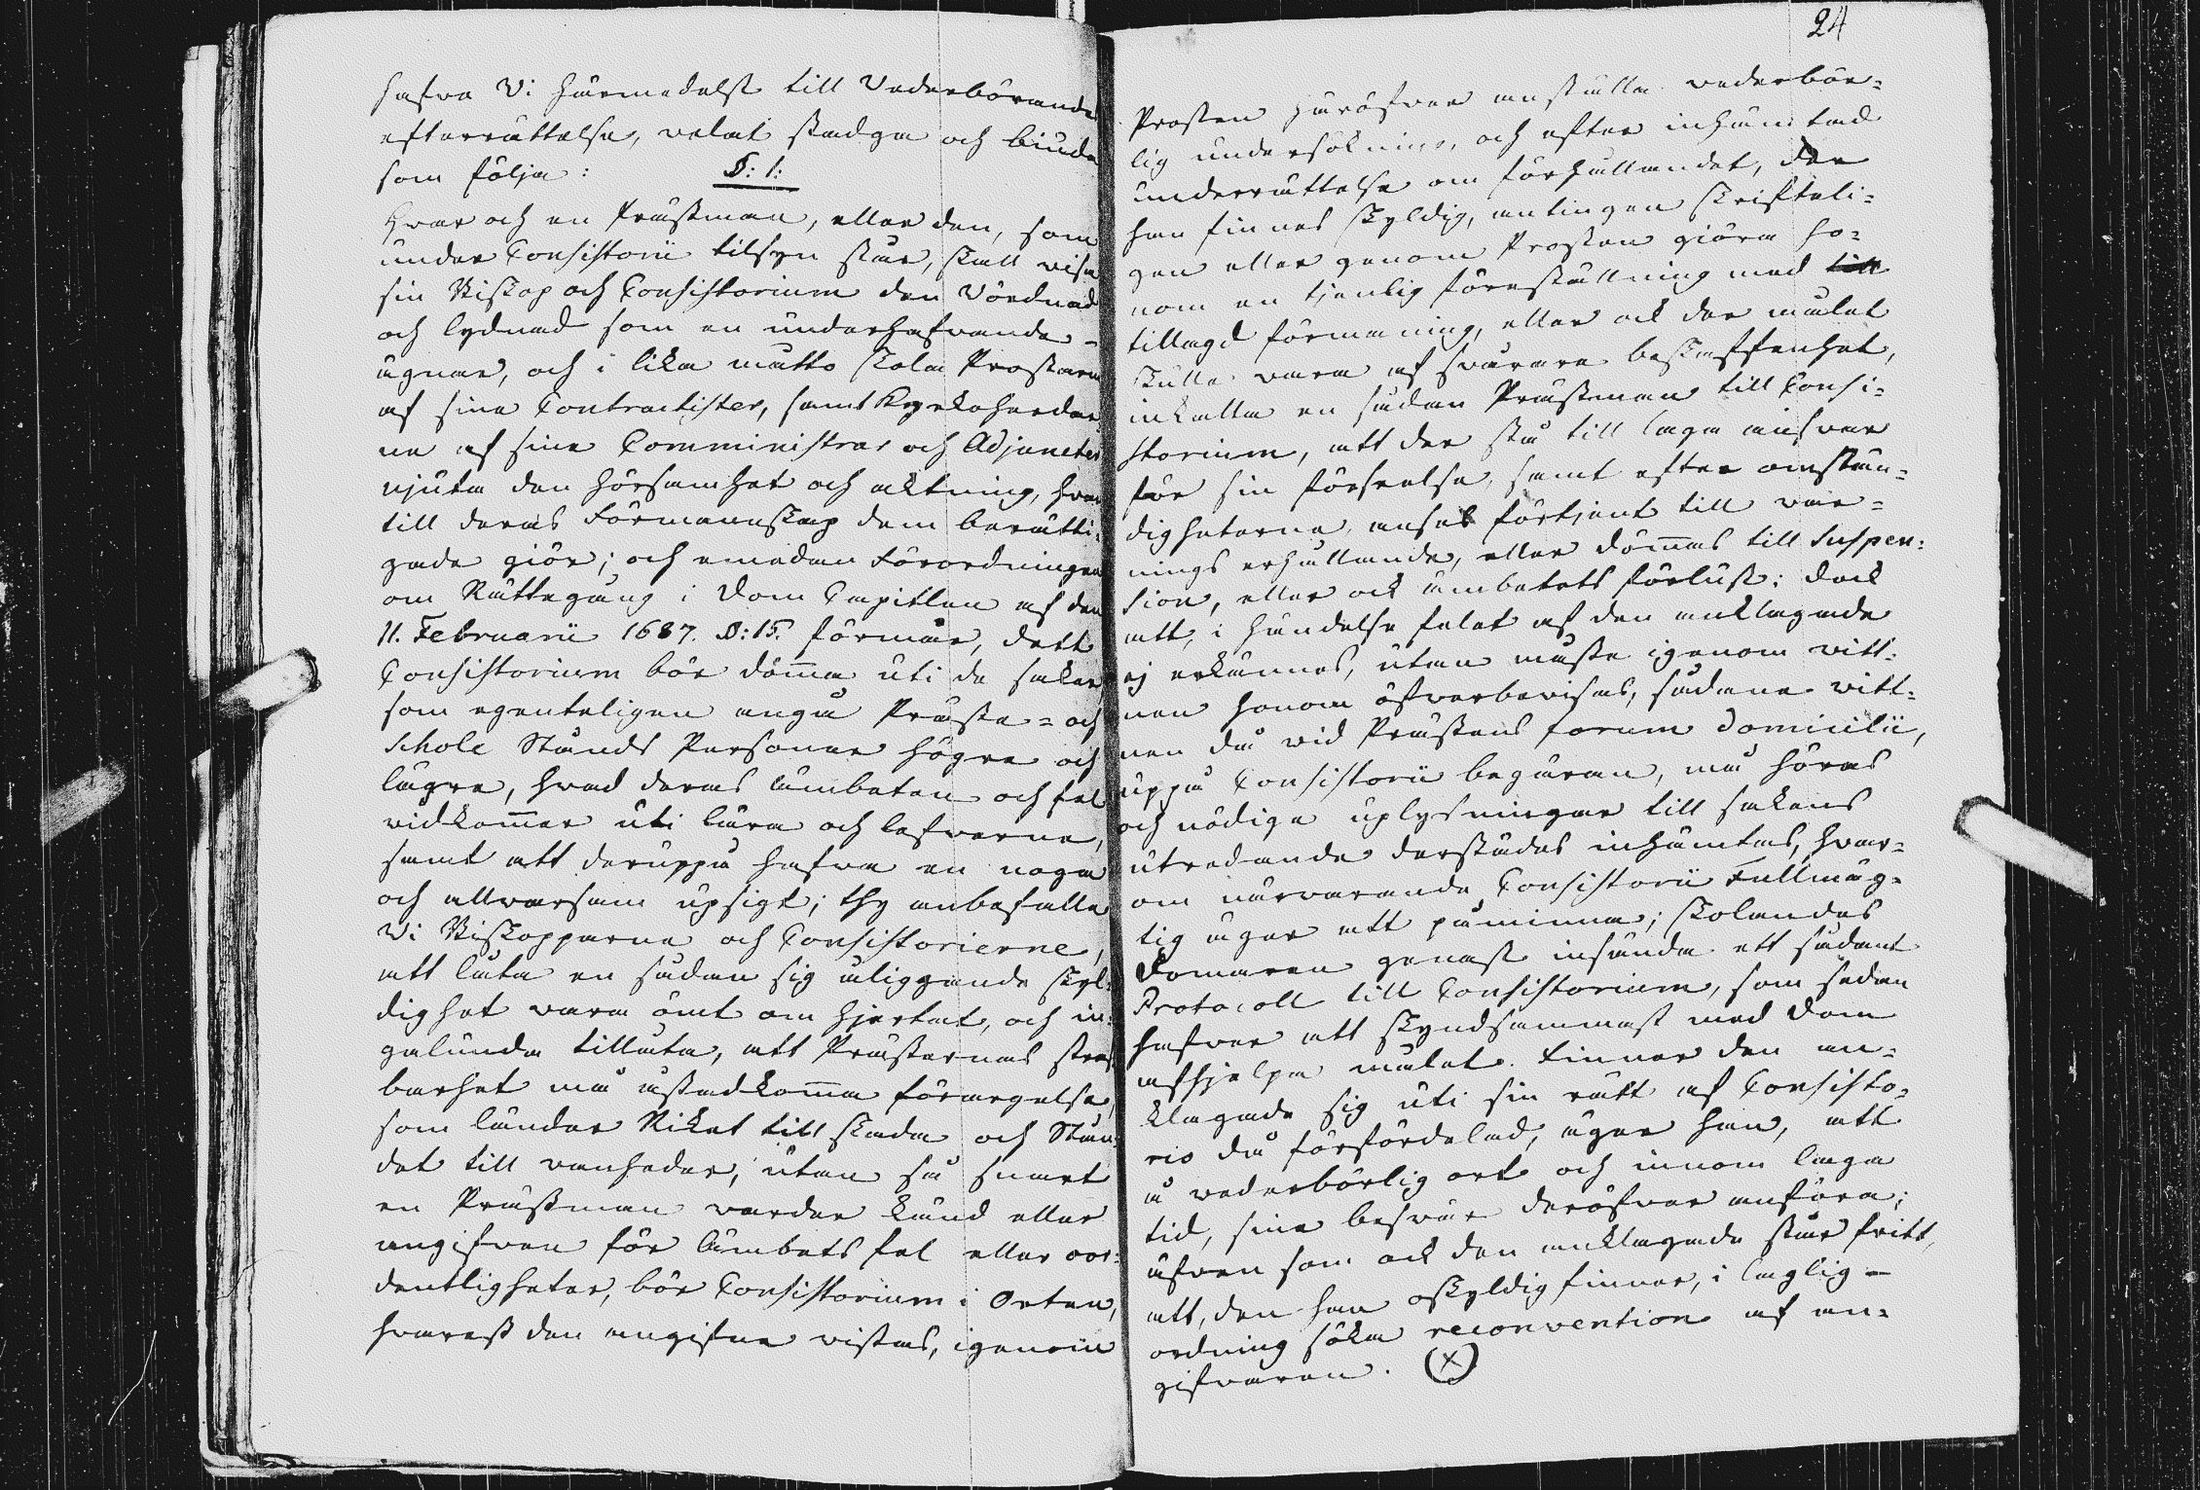 hafve Vi härmedelst till Vederbörande
efterrättelse, velat stadga och biuda
som följer:
§: 1:
Hvar och en Prästman, eller den, som
under Consistorii tilsyn står, skall visa
sin Biskop och Consistorium den Vördnad
och lydnad som en underhafvande
ägnar, och i lika måtto skola Prostarne
af sina Contractister, samt Kyrkoherdar
ne af sine Comministrar och Adjuncter
njuta den hörsamhet och aktning, hvar
till deras Förmannskap dem berätti-
gade giör; och emedan Förordningen
om Rättegång i Dom Capitlen af den
11. Februarii 1687. §: 15. förmår, dett
Consistorium bör döma uti de saker
som egenteligen angå Präste- och
Schole Stånds Personer högre och
lägre, hvad deras ämbeten och fel
vidkommer uti lära och lefverne,
samt att deruppå hafva en noga
och allvarsam upsigt; thy anbefalle
Vi Biskopparne och Consistorierne,
att låta en sådan sig åliggande skyl-
dighet vara ömt om hjertat, och in-
galunda tillåta, att Prästernas straf
barhet må åstadkomma förargelse,
som länder Riket till skada och Stån-
det till vanheder, utan så snart
en Prästman varder känd eller
angifven för Ämbets fel eller oor-
dentligheter, bör Consistorium i Orten,
hvarest den angifne vistas, igenom
24
Prosten häröfver anställa vederbör-
lig undersökning, och efter inhämtad
underrättelse om förhållandet, der
han finnes skyldig, antingen skrifteli-
gen eller genom Prosten giöra ho-
nom en tjenlig föreställning med till
tillagd förmaning, eller ock der målet
skulle vara af svårare beskaffenhet,
inkalla en sådan Prästman till Consi-
storium, att der stå till laga ansvar
för sin förseelse, samt efter omstän-
digheterna, anses förtjent till var-
nings erhållande, eller dömas till Suspen-
sion, eller ock ämbetets förlust: dock
att, i händelse felet af den anklagade
ej erkännes, utan måste igenom vitt-
nen honom öfverbevisas, sådane vitt-
nen då vid Prästens forum domicilii,
uppå Consistorii begäran, må höras
och nödiga uplysningar till sakens
utredande derstädes inhämtas, hvar-
om närvarande Consistorii Fullmäg-
tig äger att påminna; skolandes
Domaren genast insända ett sådant
Protocoll till Consistorium, som sedan
hafver att skyndsammast med Dom
afhjelpa målet. Finner den an-
klagade sig uti sin rätt af Consisto-
rio då förfördelad, äger han, att
å vederbörlig ort och innom laga
tid, sina besvär deröfver anföra;
äfven som ock den anklagade står fritt,
att, den han oskyldig finnes, i laglig
ordning söka reconvention af an-
gifvaren. (X)